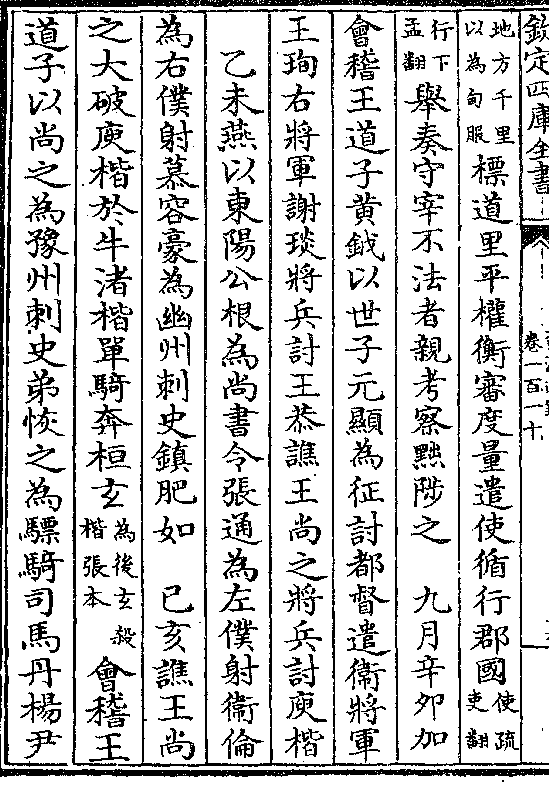 欽定四庫全書
卷一百一十
地方千里
以為甸服
標道里平權衡審度量遣使循行郡國
使疏
吏翻
行下
孟翻
舉奏守宰不法者親考察黜陟之　九月辛卯加
會稽王道子黄鉞以世子元顯為征討都督遣衛將軍
王珣右將軍謝琰將兵討王恭譙王尚之將兵討庾楷
乙未燕以東陽公根為尚書令張通為左僕射衛倫
為右僕射慕容豪為幽州刺史鎮肥如　己亥譙王尚
之大破庾楷於牛渚楷單騎奔桓玄
為後玄殺
楷張本
會稽王
道子以尚之為豫州刺史弟恢之為驃騎司馬丹楊尹